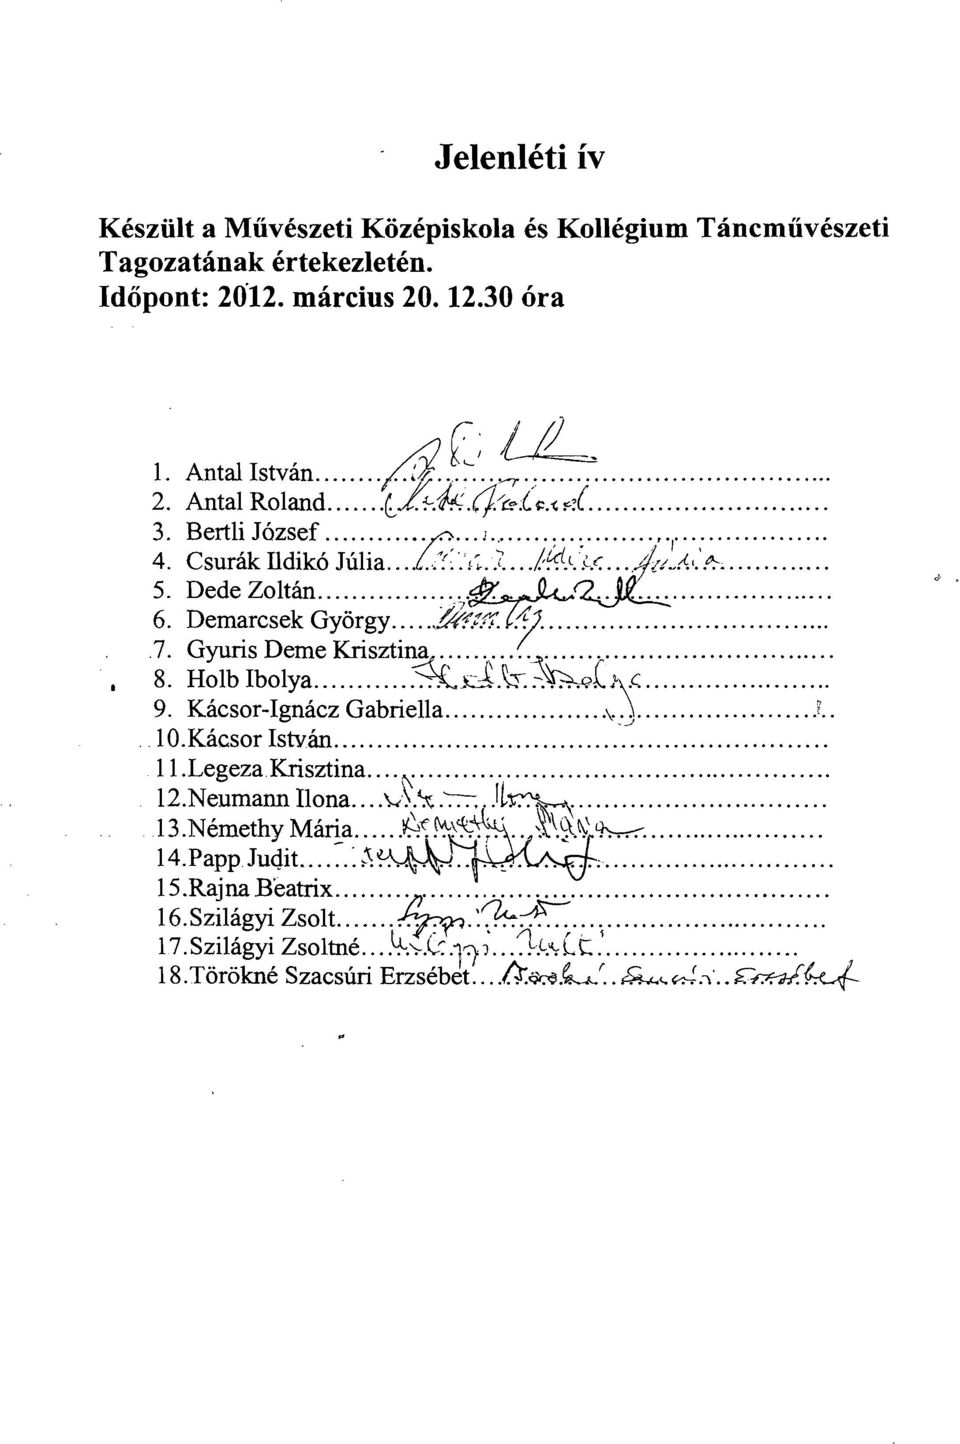 Jelenléti ív
Készült a Művészeti Középiskola és Kollégium Táncművészeti
Tagozatának értekezletén.
Időpont: 2012. március 20. 12.30 óra
1. Antal István
2. Antal Roland........Antal Roland
3. Bertli József
4. Csurák Ildikó Júlia...Csurák Ildikó Júlia
5. Dede Zoltán
6. Demarcsek György
7. Gyuris Deme Krisztina
8. Holb Ibolya............Holb Ibolya
9. Kácsor-Ignácz Gabriella
10.Kácsor István
11.Legeza Krisztina
12.Neumann Ilona.... Ilona
13.Némethy Mária.....Némethy Mária
14.Papp Judit......Papp Judit
15.Rajna Beatrix
16.Szilágyi Zsolt
17.Szilágyi Zsoltné
18.Törökné Szacsúri Erzsébet....Törökné Szacsúri Erzsébet